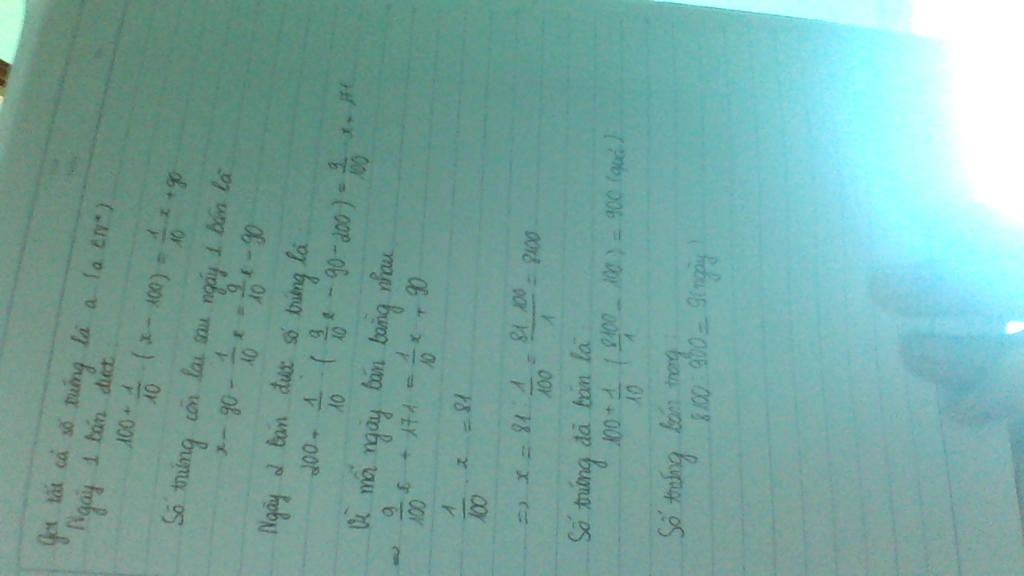 Gọi tất cả số trứng là a (a ∈ N*)
Ngày 1 bán được
100 + 1/10 . (x - 100) = 1/10 x + 90
Số trứng còn lại sau ngày 1 bán là
x - 90 - 1/10 x = 9/10 x - 90
Ngày 2 bán được số trứng là:
200 + 1/10 . (9/10 x - 90 - 200) = 9/100 . x + 171
Vì mỗi ngày bán bằng nhau
=> 9/100 x + 171 = 1/10 x + 90
1/100 . x = 81
=> x = 81 : 1/100 = 81 . 100/1 = 8100
Số trứng đã bán là
100 + 1/10 (8100/1 - 100) = 900 (quả)
Số trứng bán trong
8100 : 900 = 9 (ngày)